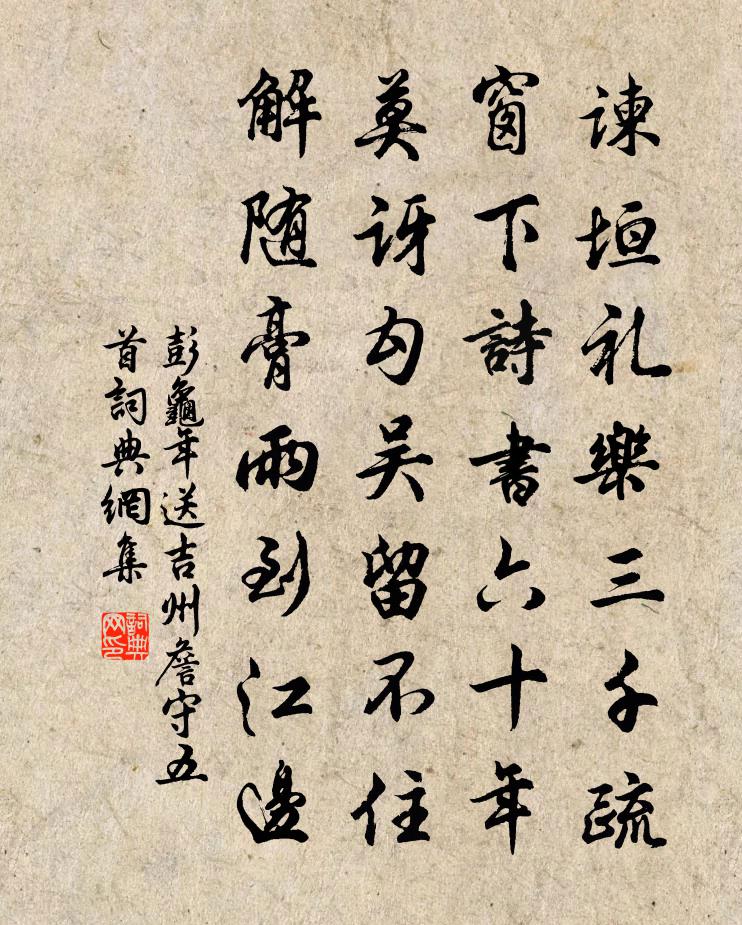 諫垣礼樂三千疏
窗下詩書六十年
莫訝勾吴留不住
解随膏雨到江邊
彭龜年送吉州詹守五
首詞典網集
詞典
网印